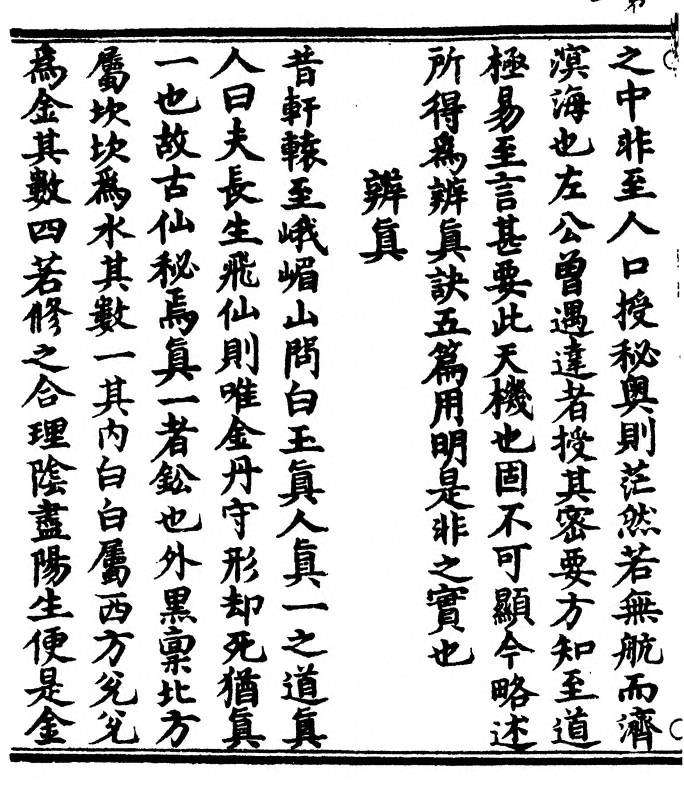 之中非至人口授秘奧則茫然若無航而濟
溟海也左公曾遇達者授其密要方知至道
極易至言甚要此天機也固不可顯今略述
所得爲辨眞訣五篇用明是非之實也
辨眞
昔軒轅至峨嵋山問白玉眞人眞一之道眞
人曰夫長生飛仙則唯金丹守形却死猶眞
一也故古仙秘焉眞一者鈆也外黑稟北方
屬坎坎爲水其數一其內白白屬西方兊兊
爲金其數四若修之合理陰盡陽生便是金